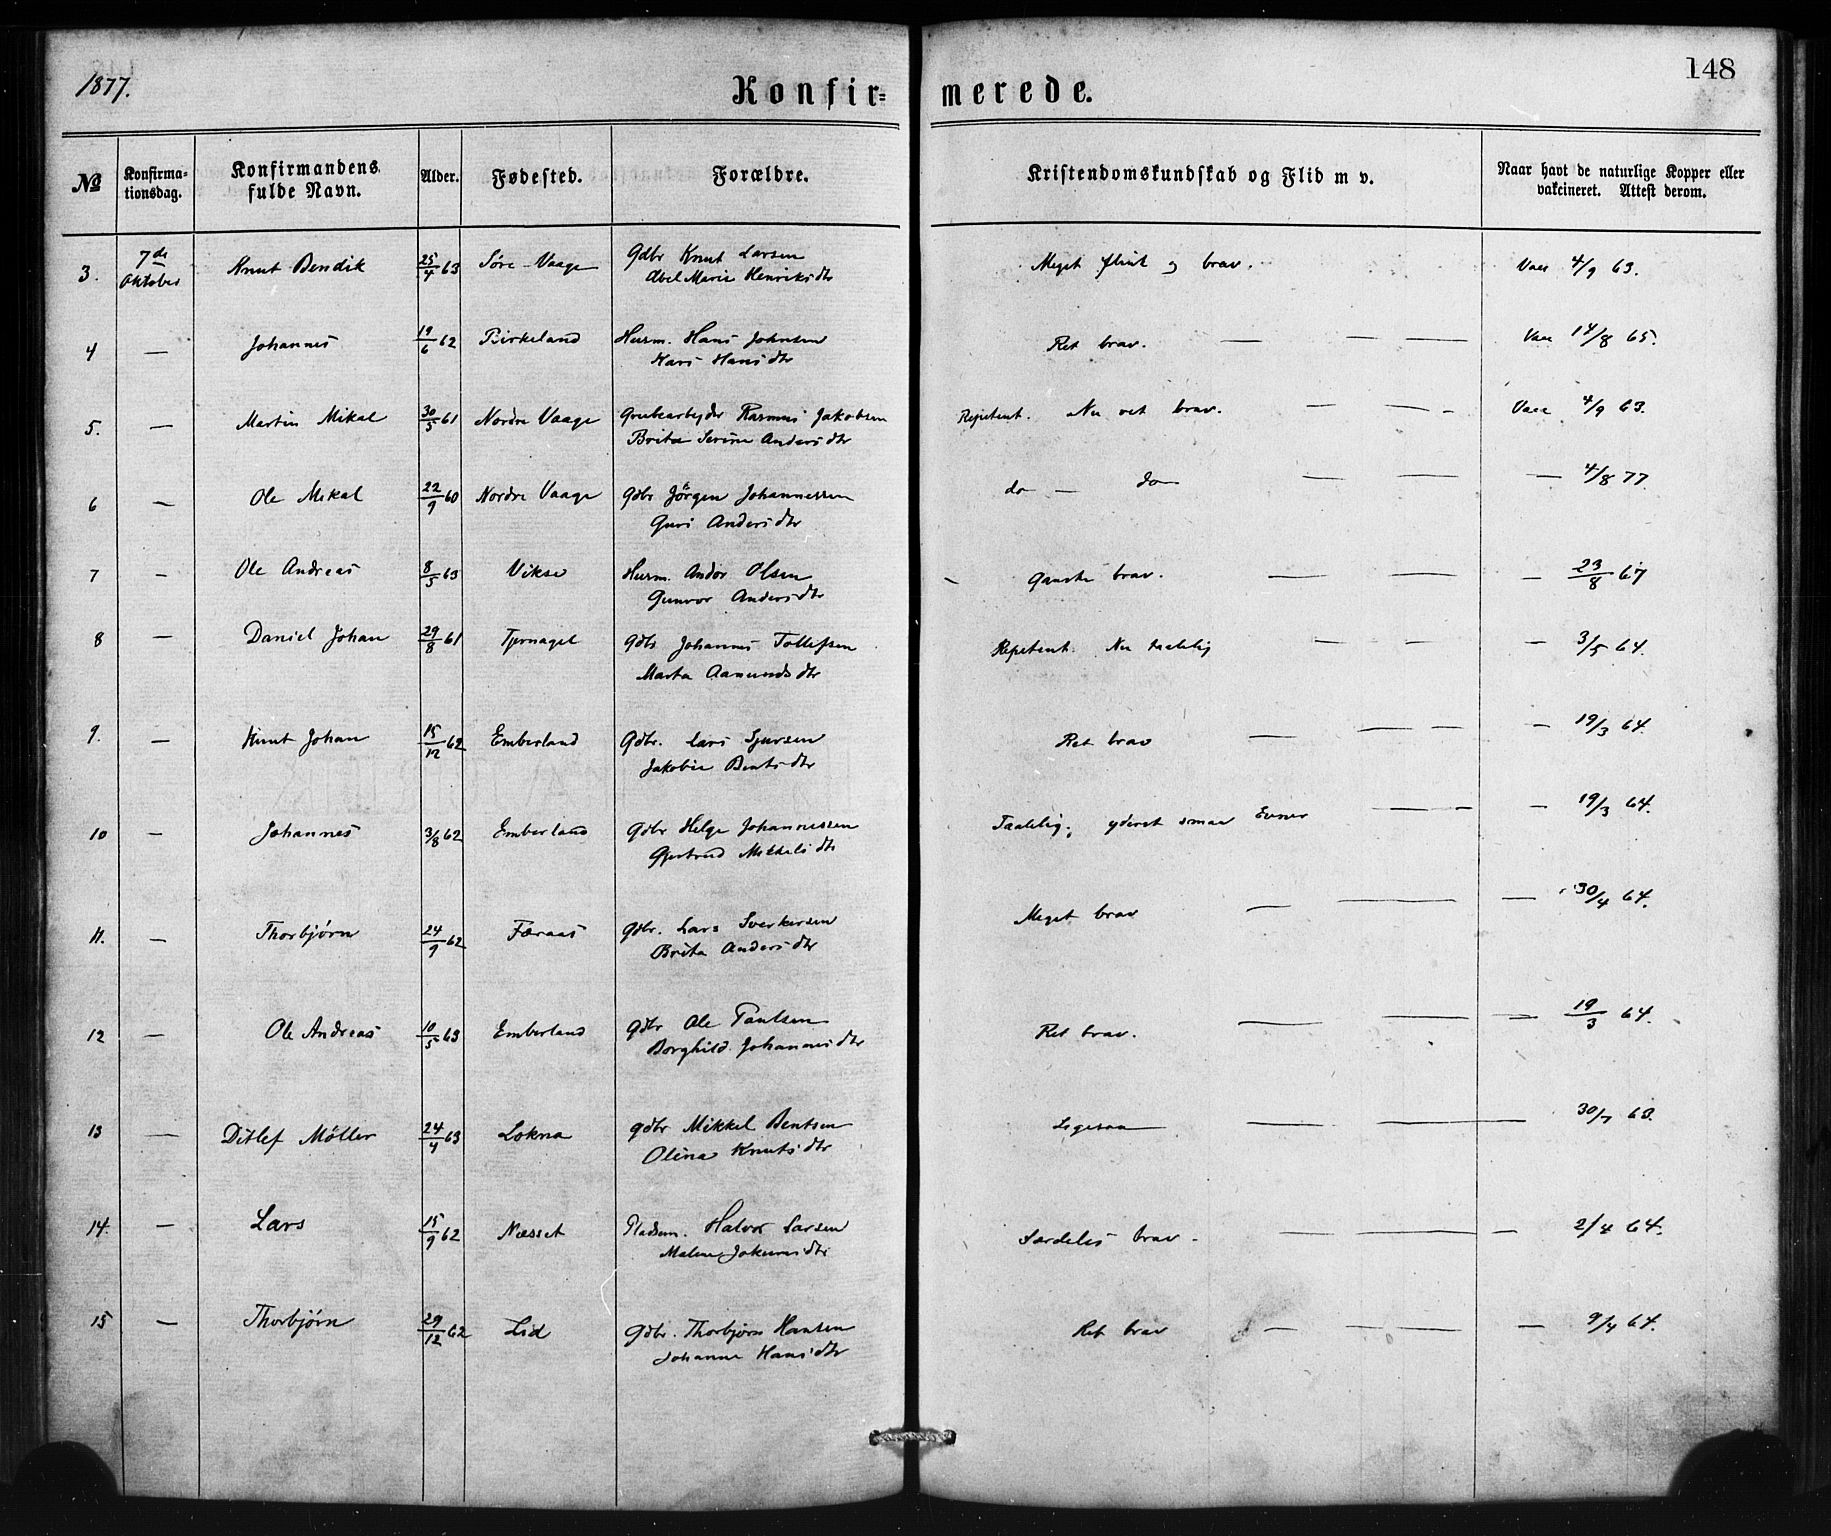 1877.
Konfir= merede.
148
№ Konfirma=tionsdag. Konfirmandens fulde Navn. Alder. Fødested. Forældre. Kristendomskundskab og Flid m v. Naar havt de naturlige Kopper eller vakcineret. Attest derom.
3. 7de Oktober Knut Bendik 25/4 63 Søre-Vaage Gdbr Knut Larsen Meget flink og brav. Vacc 4/9 63.
Abel Marie Henriksdtr
4 — Johannes 19/6 62 Birkeland Husm. Hans Johnsen Ret brav. — — — Vacc 14/8 65.
Kari Hansdtr
5. — Martin Mikal 30/5 61 Nordre Vaage Grubearbejder Rasmus Jakobsen Repetent. Nu ret brav. — — - Vacc 4/9 63.
Brita Serine Andersdtr
6 — Ole Mikal 22/9 60 Nordre Vaage Gdbr Jörgen Johannessen do — do — — — 4/8 77.
Guri Andersdtr
7 — Ole Andreas 8/5 63 Vikse Husm. Andor Olsen Ganske brav. — — — — 23/8 67
Gunvor Andersdtr
8 — Daniel Johan 29/8 61 Tjernagel Gdbr. Johannes Tollefsen Repetent. Nu taalelig — — — 3/5 64.
Marta Aamundsdtr
9. — Knut Johan 15/12 62 Emberland Gdbr. Lars Sjursen Ret brav — — — — 19/3 64.
Jakobie Bentsdtr
10 — Johannes 3/8 62 Emberland Gdbr Helge Johannessen Taalelig; yderst smaa Evner — - — 19/3 64.
Gjertrud Mikkelsdtr
11. — Thorbjörn 24/9 62 Færaas Gdbr. Lars Sverkersen Meget brav — — — 30/4 64.
Brita Andersdtr
12 — Ole Andreas 10/5 63 Emberland Gdbr Ole Paulsen Ret brav. — — — 19/3 64.
Borghild Johannesdtr
13 — Ditlef Möller 24/4 63 Lokna Gdbr Mikkel Bentsen Ligesaa — — — 30/7 63.
Olina Knutsdtr
14. — Lars 15/9 62 Næsset Pladsm. Halvor Larsen Særdeles brav. — — — 2/4 64.
Malene Jokumsdtr
15 — Thorbjörn 29/12 62 Lid Gdbr. Thorbjörn Hansen Ret brav — — — — 9/4 64.
Johanne Hansdtr